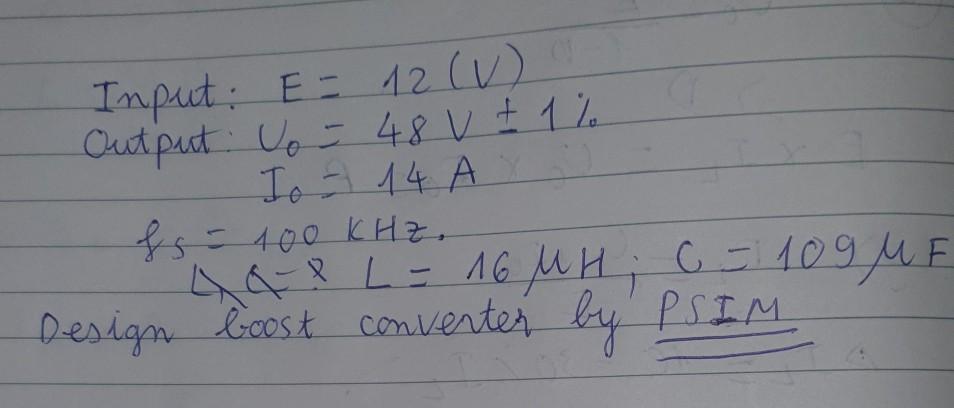 Input: E = 12 (V)
Output: Uo = 48 V ± 1%
Io = 14 A
fs = 100 KHz.
L = 16 μH; C = 109 μF
Design boost converter by PSIM